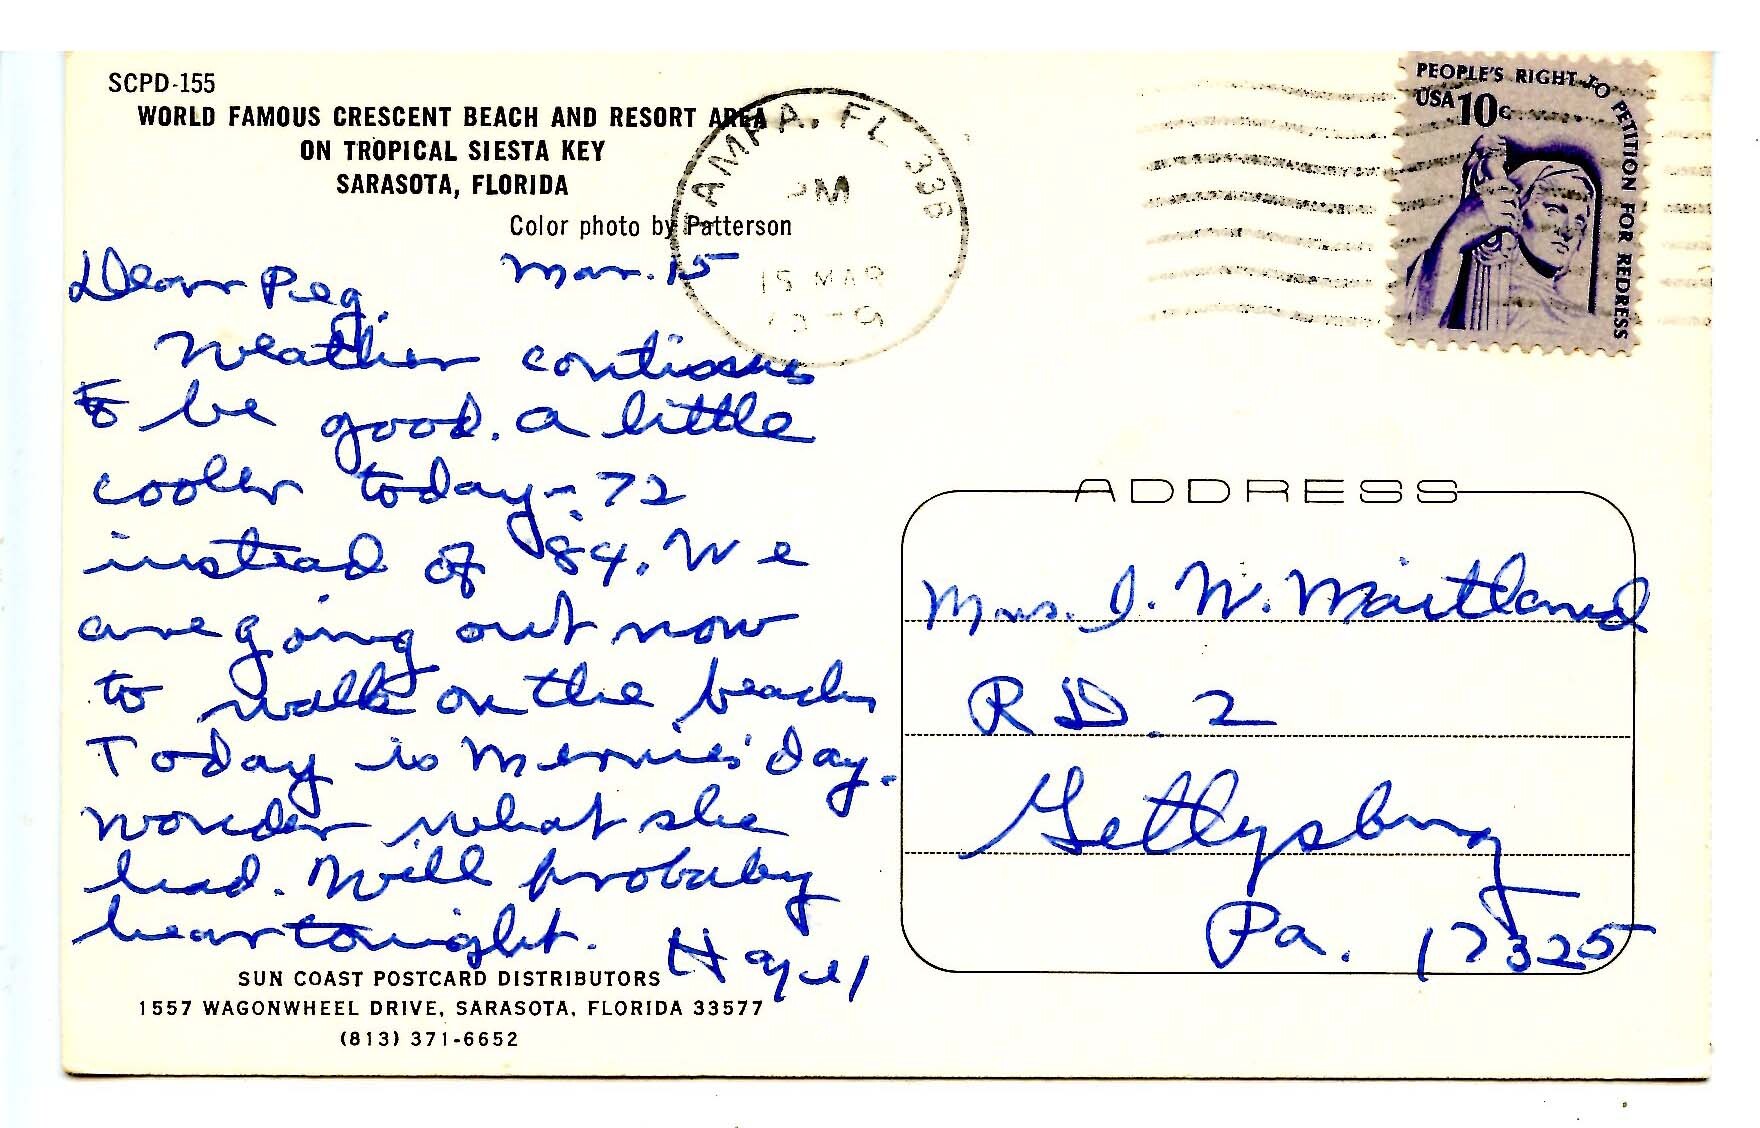 SCPD-155
WORLD FAMOUS CRESCENT BEACH AND RESORT AREA
ON TROPICAL SIESTA KEY
SARASOTA, FLORIDA
Color photo by Patterson
TAMPA, FL 336
PM
15 MAR
PEOPLE'S RIGHT TO PETITION FOR REDRESS
USA 10c
Mar. 15
Dear Peg,
Weather continues
to be good. A little
cooler today - 72
instead of 84. We
are going out now
to walk on the beach
Today is day.
Wonder what she
had. Will probably
hear tonight. Hazel
SUN COAST POSTCARD DISTRIBUTORS
1557 WAGONWHEEL DRIVE, SARASOTA, FLORIDA 33577
(813) 371-6652
ADDRESS
Mrs. I. W. Maitland
R D. 2
Gettysburg
Pa. 17325